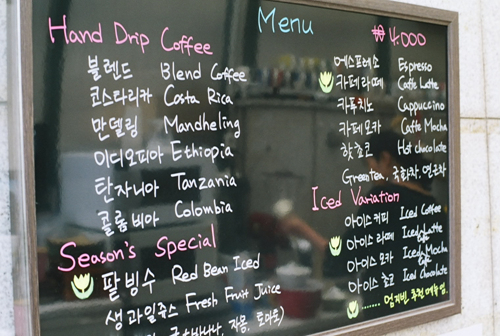 Menu
Hand Drip Coffee
블렌드 Blend Coffee
코스타리카 Costa Rica
만델링 Mandheling
이디오피아 Ethiopia
탄자니아 Tanzania
콜롬비아 Colombia
Season's Special
팥빙수 Red Bean Iced
생과일쥬스 Fresh Fruit Juice
자몽, 토마토)
₩ 4.000
에스프레소 Espresso
카페라떼 Caffe Latte
카푸치노 Cappuccino
카페모카 Caffe Mocha
핫쵸코 Hot chocolate
Greentea, 국화차,
Iced Variation
아이스커피 Iced Coffee
아이스라떼 Iced Latte
아이스 모카 Iced Mocha
아이스 쵸코 Iced Chocolate
추천 메뉴임.